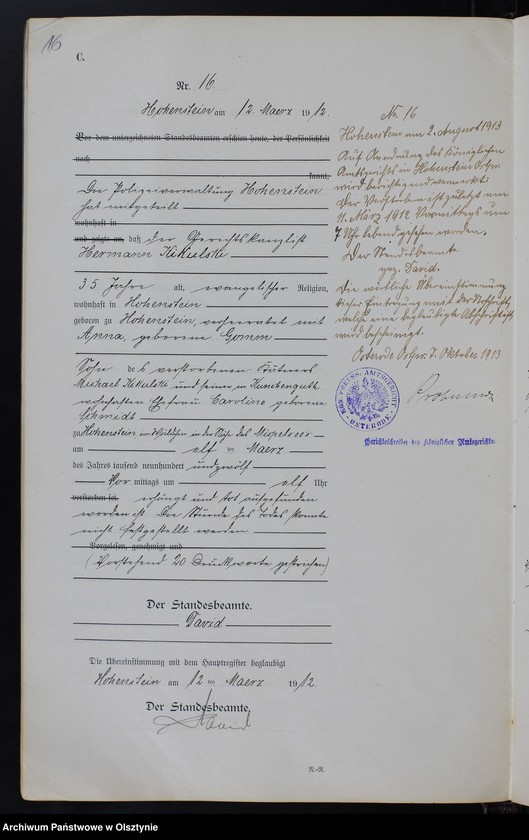 16
C.
Nr. 16
Hohenstein am 12. Maerz 1912.
Vor dem unterzeichneten Standesbeamten erschien heute, der Persönlichkeit
nach
kannt,
Die Polizeiverwaltung Hohenstein
hat mitgeteilt
wohnhaft in
und zeigte an, daß der Gerichtskanzlist
Hermann Kikulski
35 Jahre alt, evangelischer Religion,
wohnhaft in Hohenstein
geboren zu Hohenstein, verheiratet mit
Anna, geborene Gomm
Sohn des verstorbenen
Michael Kikulski und seiner in
wohnhaften Ehefrau Caroline geborene
Schmidt
zu Hohenstein im Wäldchen in der Nähe des Mispelsees
am elf ten Maerz
des Jahres tausend neunhundert undzwölf
Vor mittags um elf Uhr
verstorben sei. erhängt und tot aufgefunden
worden ist. Die Stunde des Todes konnte
nicht festgestellt werden
Vorgelesen, genehmigt und
(Vorstehend 20 Druckworte gestrichen)
Der Standesbeamte.
David
Die Übereinstimmung mit dem Hauptregister beglaubigt
Hohenstein am 12 ten Maerz 1912.
Der Standesbeamte.
David
N.-R.
No. 16
Hohenstein am 2. August 1913
Auf Anordnung des Königlichen
Amtsgerichts in Hohenstein Ostpr.
wird berichtigend vermerkt:
Der Verstorbene ist zuletzt am
11. März 1912 Vormittags um
7 Uhr lebend gesehen worden.
Der Standesbeamte
gez. David.
Die wörtliche Übereinstimmung
dieser Eintragung mit der
welche eine beglaubigte Abschrift ist
wird bescheinigt.
Osterode Ostpr. 7. Oktober 1913
KGL. PREUSS. AMTSGERICHT
OSTERODE
Gerichtsschreiber des Königlichen Amtsgerichts.
Archiwum Państwowe w Olsztynie